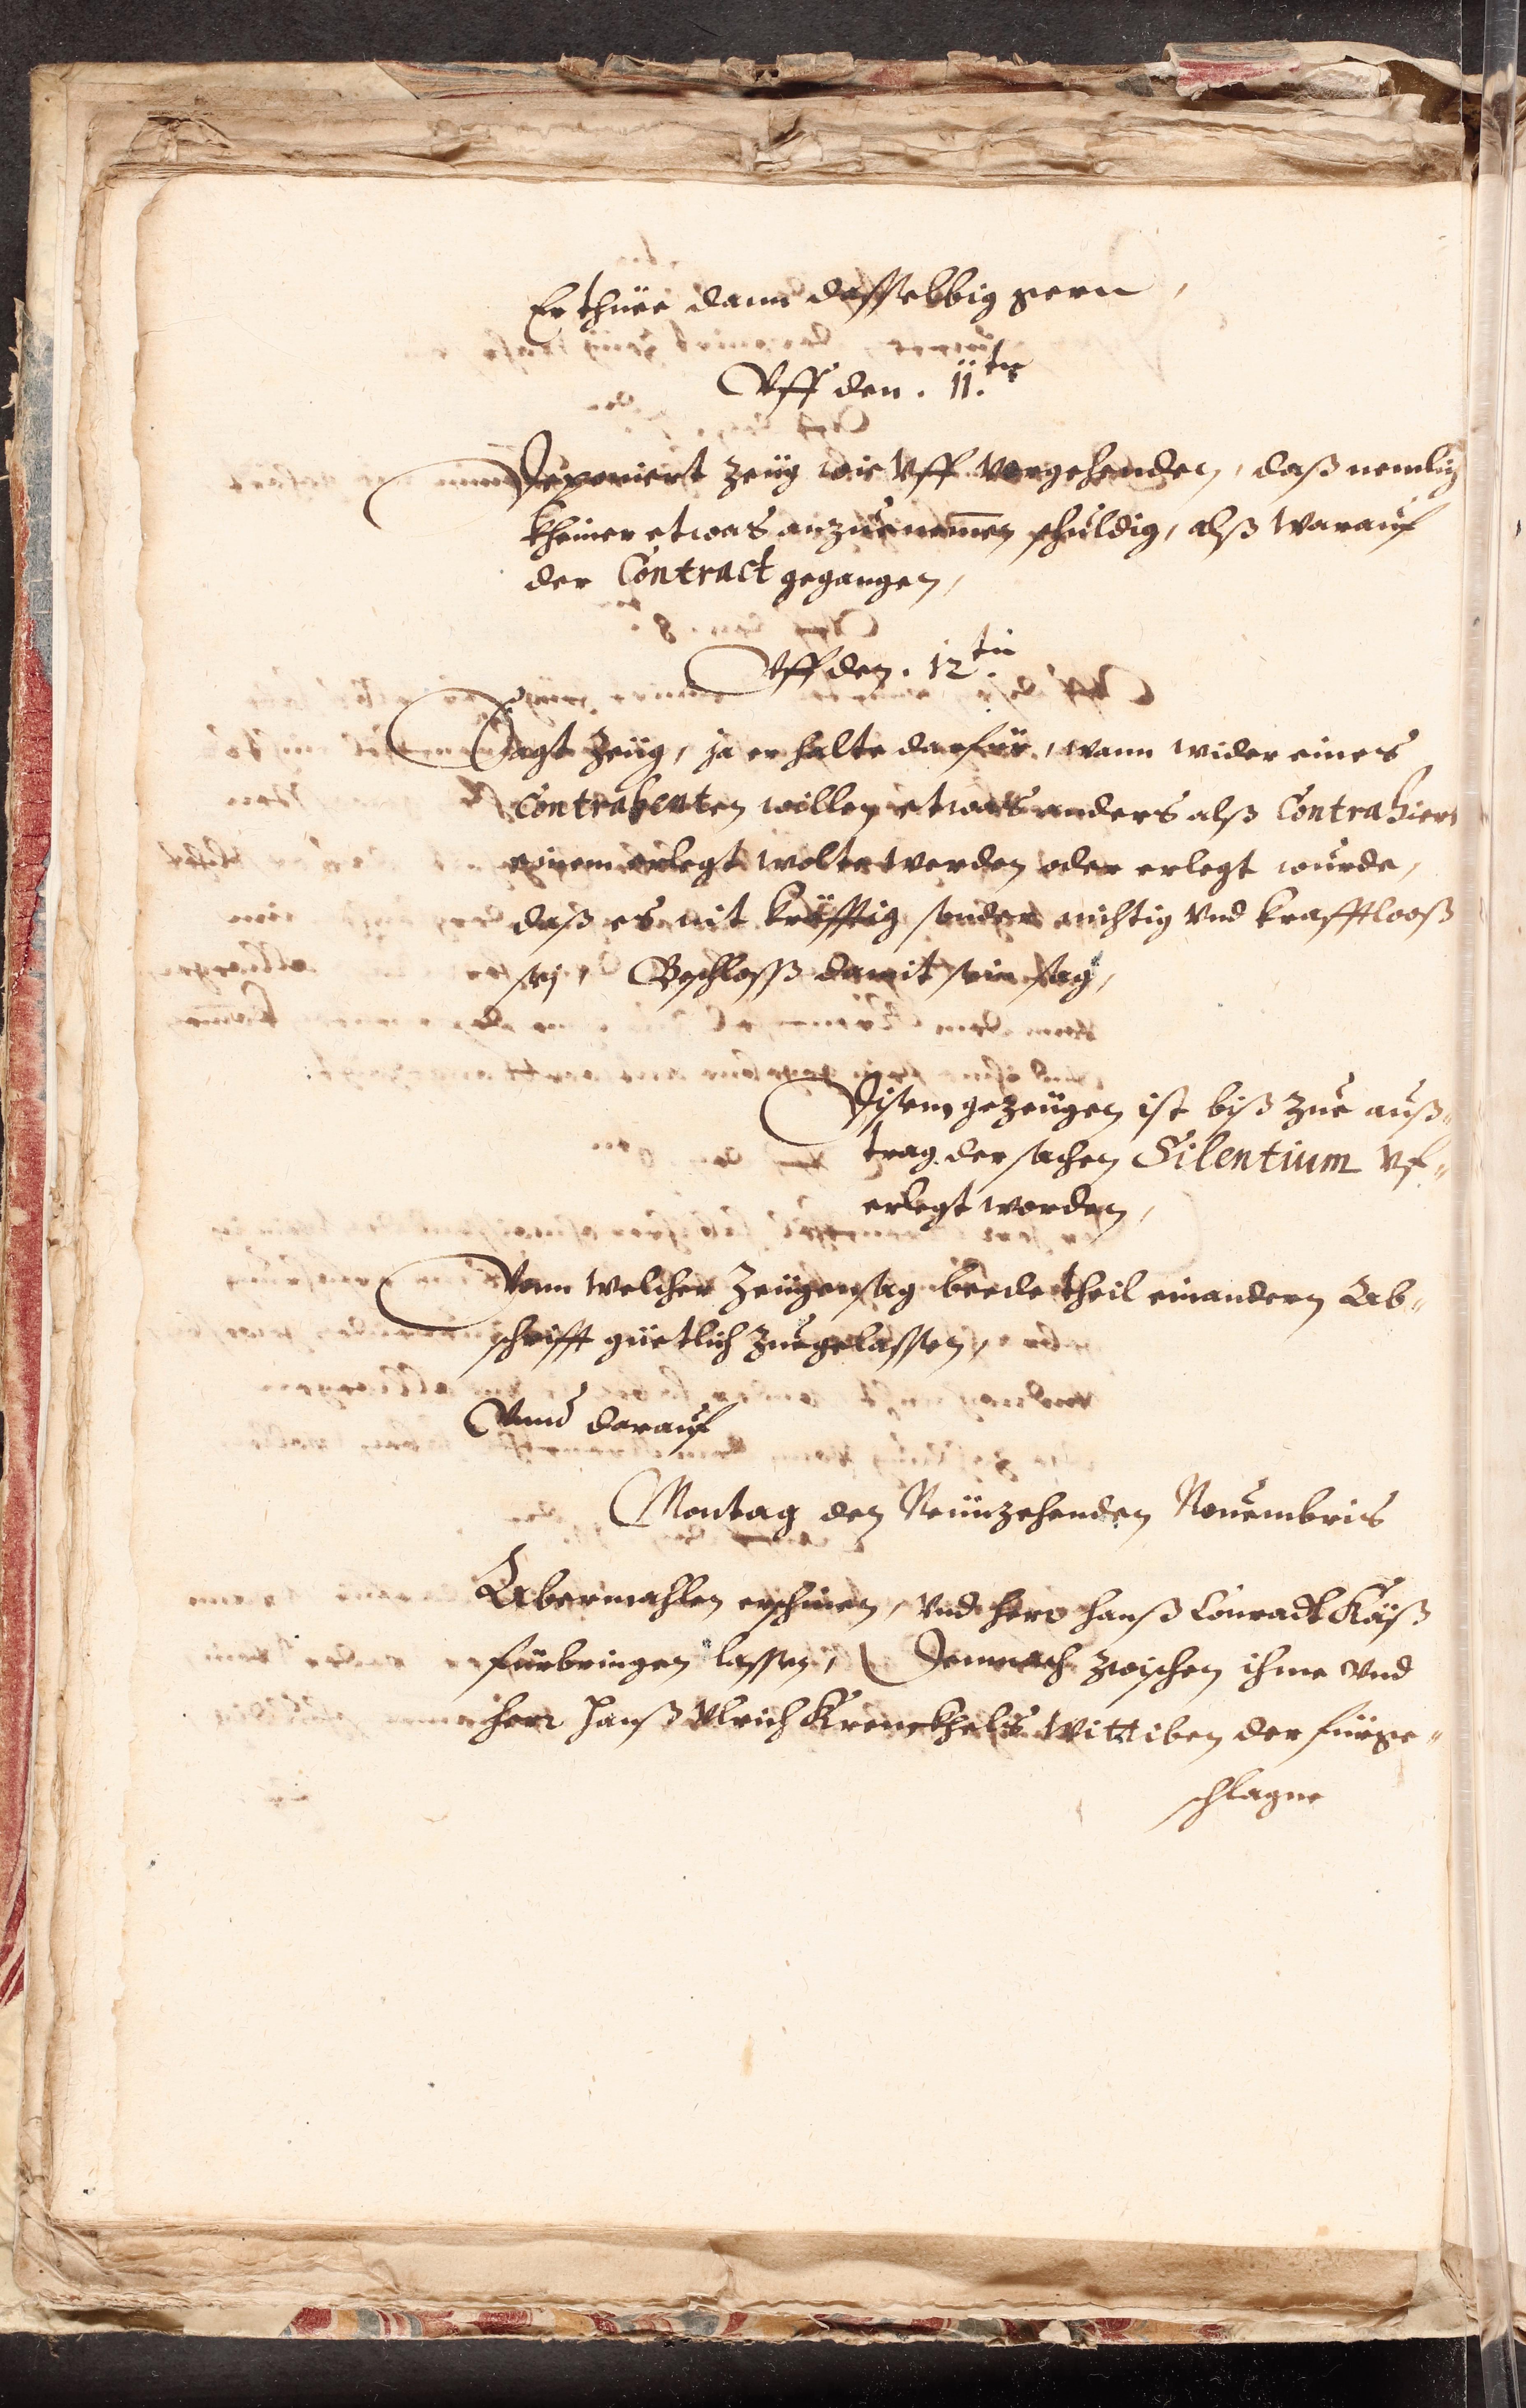 Er thüee dann dasselbig gern,
Vff den. 11.ten
Deponiert Zeüg wie Vff vorgehenden, daß nemlich
kheiner etwas anzuenemen schuldig, alß warauf
der Contract gegangen,
Vff den. 12.ten
Sagt Zeüg, ja er halte darfür, wann wider eines
Contrahenten willen etwas anders alß Contrahiert
einem erlegt wolte werden oder erlegt wurde,
daß es nit kräfftig sonder nichtig vnd krafftlooß
sej, Beschloß damit sein sag,
Disem gezeügen ist biß zue auß„
trag der sachen Silentium vf„
erlegt worden,
Vonn welcher Zeügensag beede theil einandern Ab„
schrifft güetlich zuegelassen,
Vnnd darauf
Montag den Neünzehenden Nouembris
Abermahlen erschinen, vnd herr Hanß Conradt Käß
fürbringen lassen, Demnach zwischen ihme vnd
herr Hanß Vlrich Krenckhels Wittiben der fürge„
schlagne